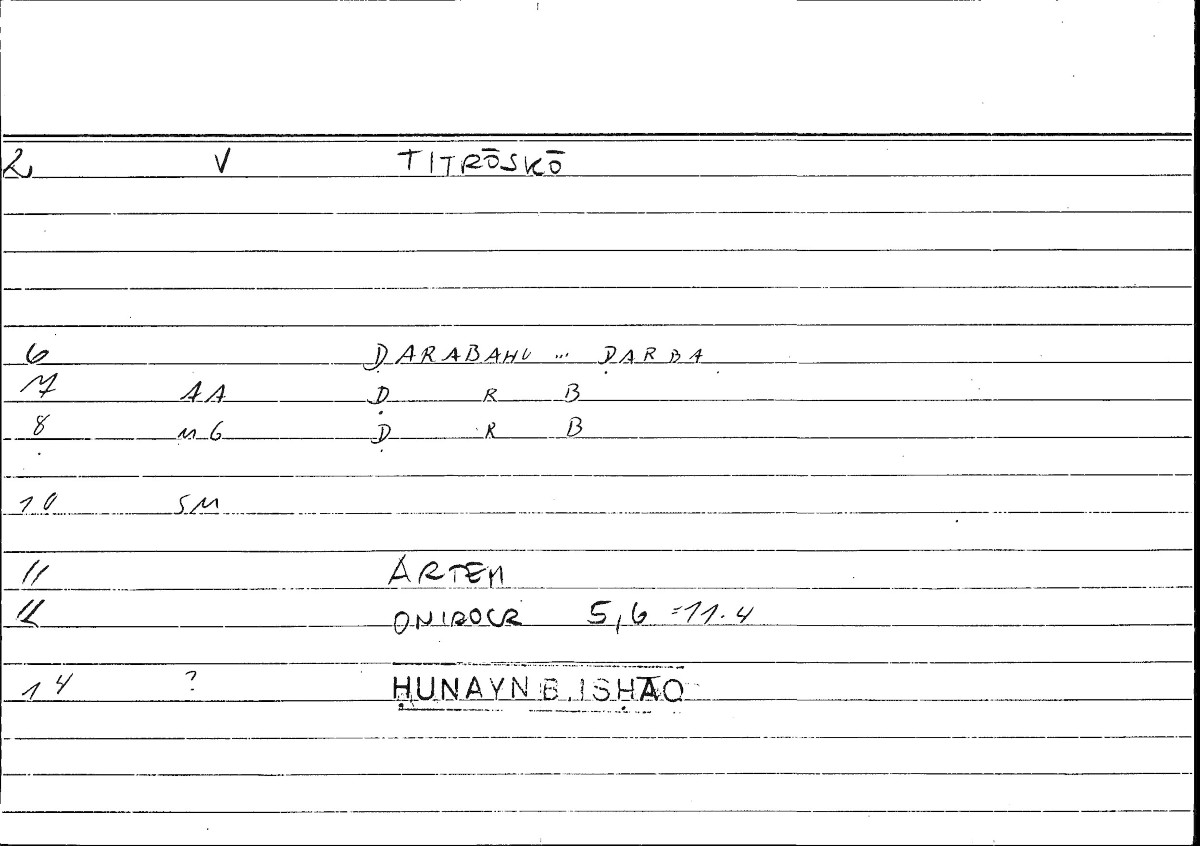 2 V TITRŌSKŌ
6 ḌARABAHU ... ḌARBA
7 AA Ḍ R B
8 MG Ḍ R B
10 SM
11 ARTEM
12 ONIROCR 5,6 =11.4
14 ? ḤUNAYN B. ISḤĀQ